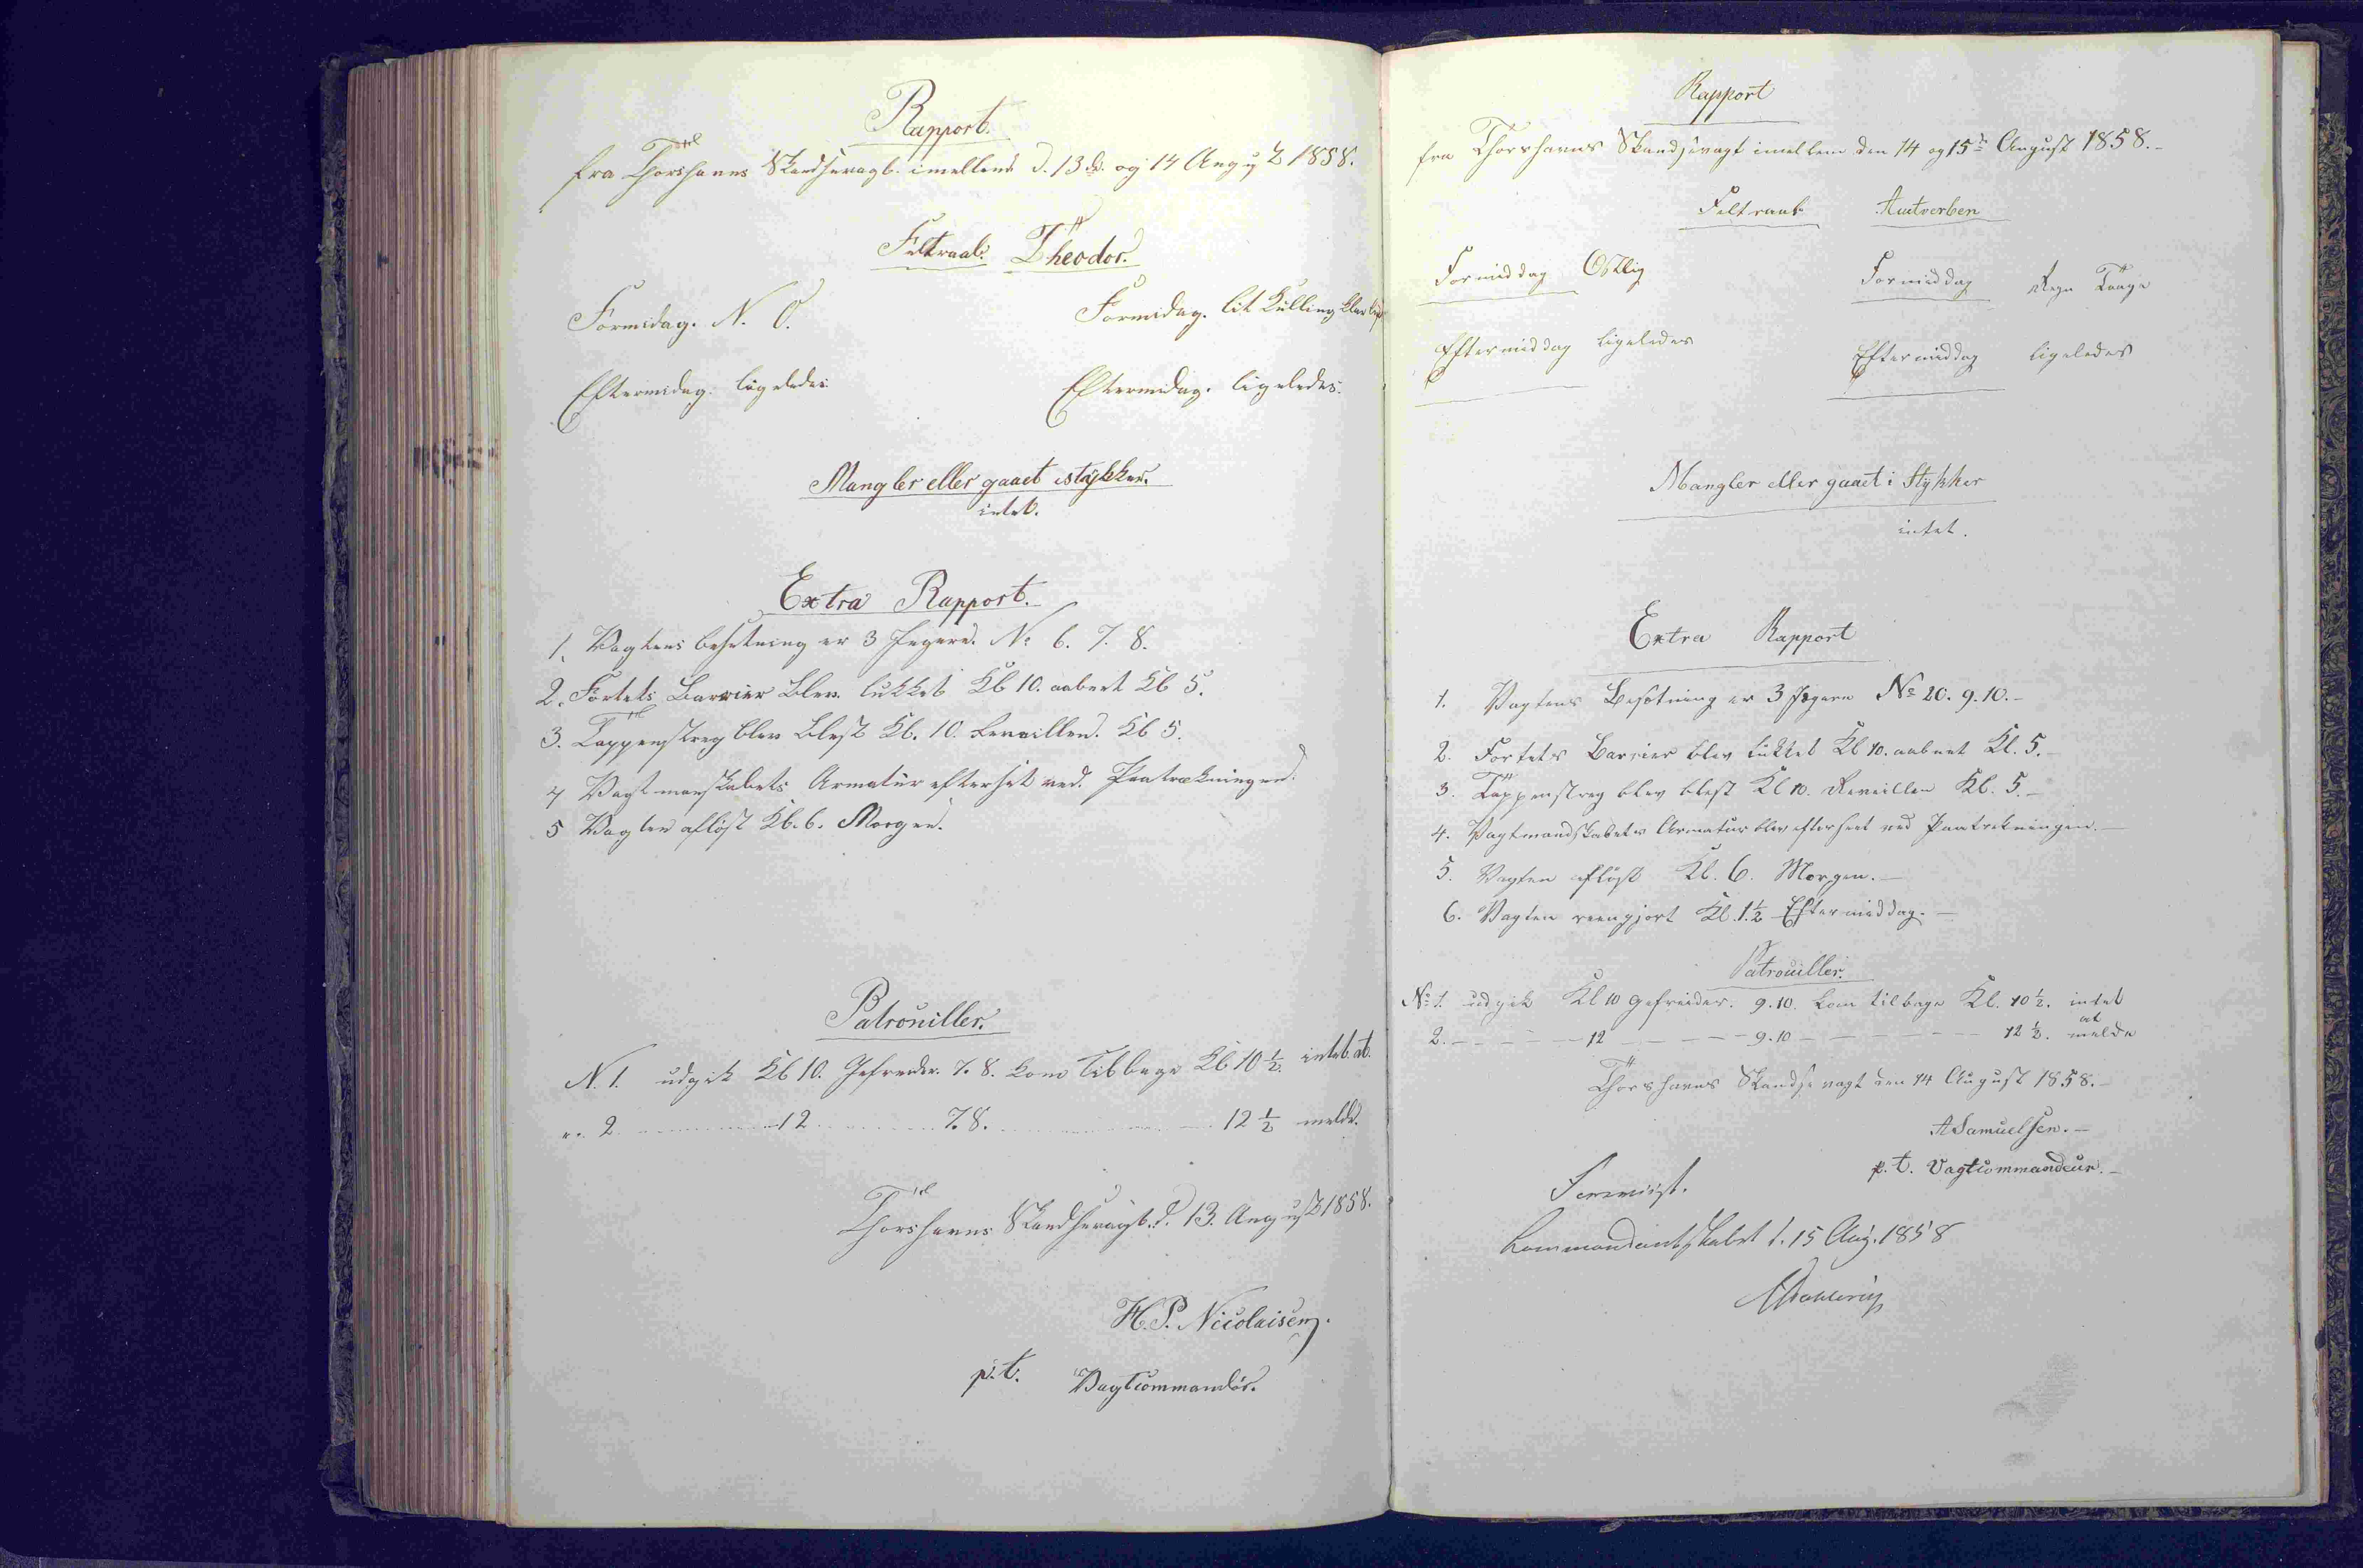 Rapport.
fra Thorshavns Skandsevagt. imellem d. 13de og 14 August 1858.
Feltraab. Theodor.
Formidag. N. O.
Formidag. lit Kulling klar
Eftermidag. ligeledes
Eftermidag. ligeledes.
Mangler eller gaaet istykker.
intet.
Extra Rapport.
1. Vagtens besetning er 3 Jegere. No 6. 7. 8.
2. Fortets Barrier blev lukket Kl 10. aabnet Kl 5.
3. Tappenstreg blev blest Kl. 10. Reveillen. Kl 5.
4 Vagtmanskabets Armatur efterset ved. Paatrækningen.
5 Vagten afløst Kl. 6. Morgen.
Patrouiller.
N. 1. udgik Kl 10. Gefreider. 7. 8. kom tilbage Kl 10 1/2. intet. at.
" 2 12 7. 8. 12 1/2 melde.
Thorshavns Skandsevagt. d. 13. August 1858.
H. P. Nicolaisen.
p. t. Vagtcommandör.
Rapport
fra Thorshavns Skandsevagt imellem den 14 og 15de August 1858.-
Feltraab Antverben
Formiddag Ostlig
Formiddag Regn Taage
Eftermiddag ligeledes
Eftermiddag ligeledes
Mangler eller gaaet i Stykker
intet.
Extra Rapport
1. Vagtens Besetning er 3 Jægere No 20. 9. 10.-
2. Fortets Barrier blev lukket Kl 10. aabnet Kl. 5.-
3. Tappenstreg blev blest Kl 10. Reveillen Kl. 5.-
4. Vagtmandskabets Armatur blev efterseet ved Paatrekningen.-
5. Vagten afløst Kl. 6. Morgen.-
6. Vagten reengjort Kl. 1 1/2 Eftermiddag.-
Patrouiller.
No 1. udgik Kl 10 Gefreider. 9. 10. kom tilbage Kl. 10 1/2. intet
2. - - - - 12 - - - - 9. 10 - - - - - - 12 1/2. at melde
Thorshavns Skandsevagt den 14 August 1858.-
A Samuelsen.-
p. t. Vagtcommandeur.-
Foreviist.
Commandantskabet d. 15 Aug. 1858